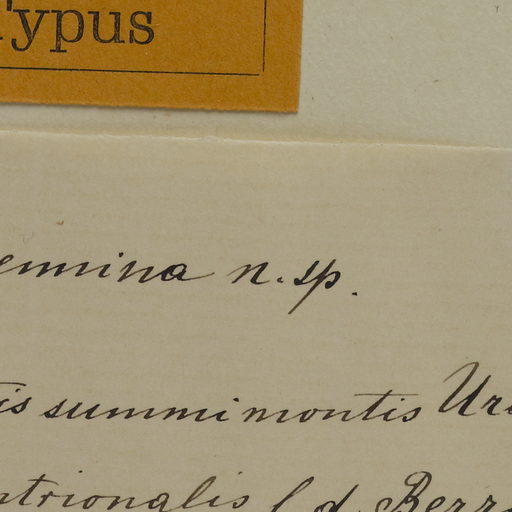 Typus
ennina n. sp.
is summi montis Uru
ntrionalis (d. Berro